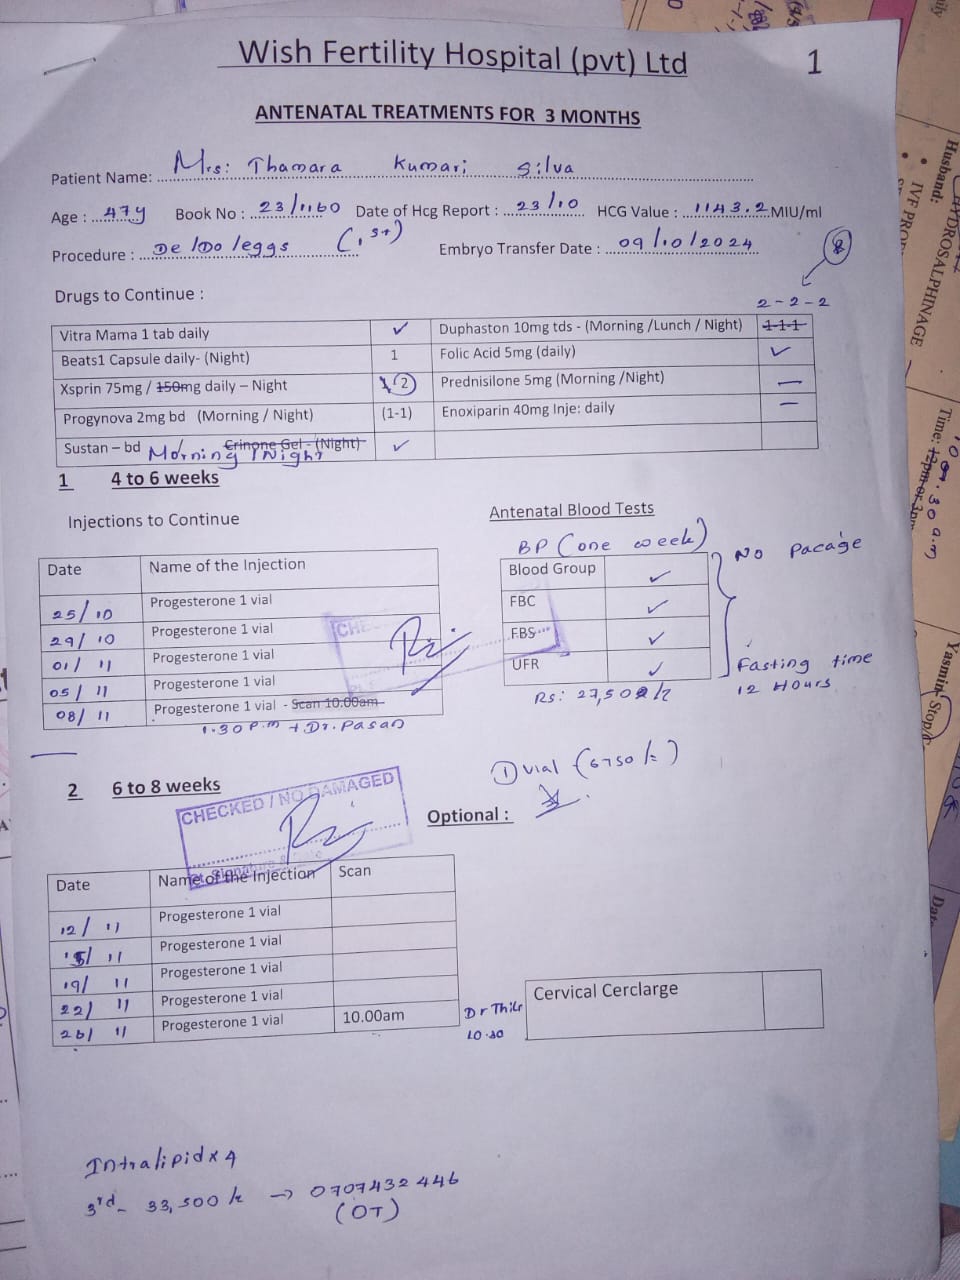 Wish Fertility Hospital (pvt) Ltd 1
ANTENATAL TREATMENTS FOR 3 MONTHS
Patient Name: Mrs: Thamara Kumari Silva
Age : 47y Book No : 23/1160 Date of Hcg Report : 23/10 HCG Value : 1143.2 MIU/ml
Procedure : De /Do /eggs (1st) Embryo Transfer Date : 09/10/2024
Drugs to Continue :
2-2-2
Vitra Mama 1 tab daily ✓ Duphaston 10mg tds - (Morning /Lunch / Night) 1-1-1
Beats1 Capsule daily- (Night) 1 Folic Acid 5mg (daily) ✓
Xsprin 75mg / 150mg daily – Night 2 Prednisilone 5mg (Morning /Night) —
Progynova 2mg bd (Morning / Night) (1-1) Enoxiparin 40mg Inje: daily —
Sustan – bd Morning / Night Crinone Gel - (Night) ✓
1 4 to 6 weeks
Injections to Continue
Antenatal Blood Tests
BP (one week)
No pacage
Date Name of the Injection
25/10 Progesterone 1 vial
29/10 Progesterone 1 vial
01/11 Progesterone 1 vial
05/11 Progesterone 1 vial
08/11 Progesterone 1 vial - Scan 10.00am
1.30 P.m + Dr. Pasan
Blood Group ✓
FBC ✓
FBS ✓
UFR ✓
Fasting time
12 Hours
Rs: 27,500/=
① vial (6750/=)
2 6 to 8 weeks
CHECKED / NO DAMAGED
Optional :
Date Name of the Injection Scan
12/11 Progesterone 1 vial
15/11 Progesterone 1 vial
19/11 Progesterone 1 vial
22/11 Progesterone 1 vial
26/11 Progesterone 1 vial 10.00am
Dr Thilr
10.30
Cervical Cerclarge
Intralipid x 4
3rd- 33,500/= → 0707432446
(OT)
HYDROSALPHINAGE
Husband:
Time: 12pm or
.30 a.m
Yasmin- Stop